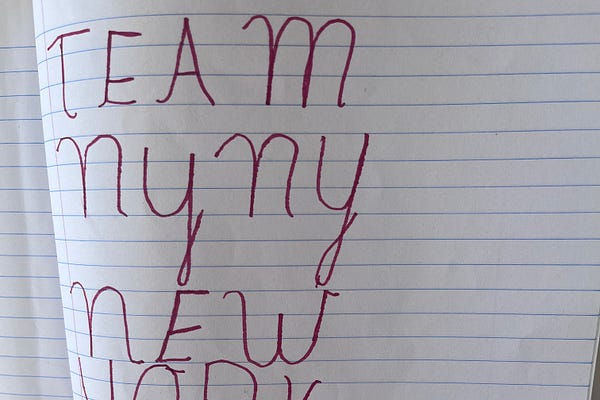 TEAM
NYNY
NEW